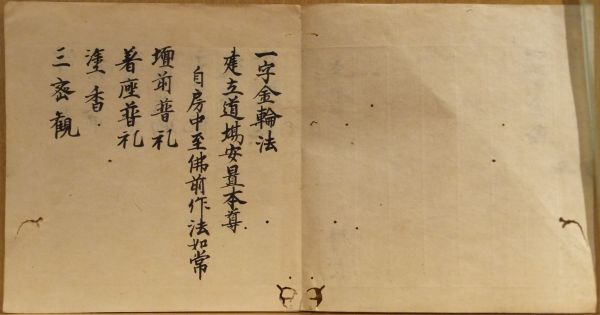 一字金輪法
建立道場安置本尊
自房中至佛前作法如常
壇前普礼
着座普礼
塗香
三密觀